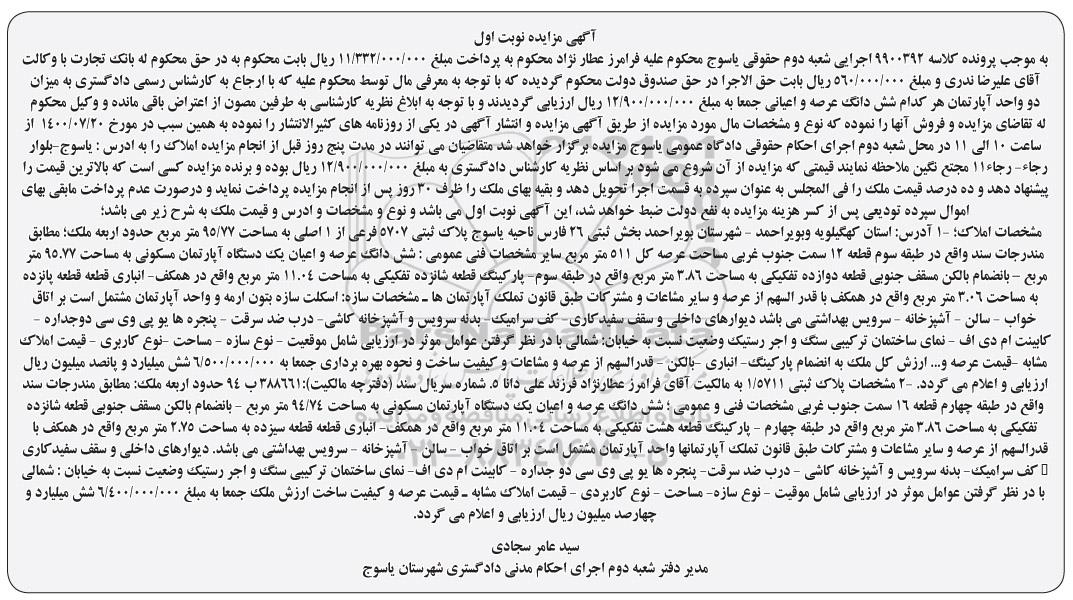 آگهی مزایده نوبت اول
به موجب پرونده کلاسه ۹۹۰۰۳۹۲ اجرایی شعبه دوم حقوقی یاسوج محکوم علیه فرامرز عطار نژاد محکوم به پرداخت مبلغ ۱۱/۳۳۲/۰۰۰/۰۰۰ ریال بابت محکوم به در حق محکوم له بانک تجارت با وکالت
آقای علیرضا ندری و مبلغ ۵۶۰/۰۰۰/۰۰۰ ریال بابت حق الاجرا در حق صندوق دولت محکوم گردیده که با توجه به معرفی مال توسط محکوم علیه که با ارجاع به کارشناس رسمی دادگستری به میزان
دو واحد آپارتمان هر کدام شش دانگ عرصه و اعیانی جمعا به مبلغ ۱۲/۹۰۰/۰۰۰/۰۰۰ ریال ارزیابی گردیدند و با توجه به ابلاغ نظریه کارشناسی به طرفین مصون از اعتراض باقی مانده و وکیل محکوم
له تقاضای مزایده و فروش آنها را نموده که نوع و مشخصات مال مورد مزایده از طریق آگهی مزایده و انتشار آگهی در یکی از روزنامه های کثیرالانتشار را نموده به همین سبب در مورخ ۱۴۰۰/۰۷/۲۰ از
ساعت ۱۰ الی ۱۱ در محل شعبه دوم اجرای احکام حقوقی دادگاه عمومی یاسوج مزایده برگزار خواهد شد متقاضیان می توانند در مدت پنج روز قبل از انجام مزایده املاک را به ادرس : یاسوج-بلوار
رجاء- رجاء۱۱ مجتع نگین ملاحظه نمایند قیمتی که مزایده از آن شروع می شود بر اساس نظریه کارشناس دادگستری به مبلغ ۱۲/۹۰۰/۰۰۰/۰۰۰ ریال بوده و برنده مزایده کسی است که بالاترین قیمت را
پیشنهاد دهد و ده درصد قیمت ملک را فی المجلس به عنوان سپرده به قسمت اجرا تحویل دهد و بقیه بهای ملک را ظرف ۳۰ روز پس از انجام مزایده پرداخت نماید و درصورت عدم پرداخت مابقی بهای
اموال سپرده تودیعی پس از کسر هزینه مزایده به نفع دولت ضبط خواهد شد، این آگهی نوبت اول می باشد و نوع و مشخصات و ادرس و قیمت ملک به شرح زیر می باشد؛
مشخصات املاک؛ -۱ آدرس: استان کهگیلویه وبویراحمد - شهرستان بویراحمد بخش ثبتی ۲۶ فارس ناحیه یاسوج پلاک ثبتی ۵۷۰۷ فرعی از ۱ اصلی به مساحت ۹۵/۷۷ متر مربع حدود اربعه ملک؛ مطابق
مندرجات سند واقع در طبقه سوم قطعه ۱۲ سمت جنوب غربی مساحت عرصه کل ۵۱۱ متر مربع سایر مشخصات فنی عمومی : شش دانگ عرصه و اعیان یک دستگاه آپارتمان مسکونی به مساحت ۹۵.۷۷ متر
مربع - بانضمام بالکن مسقف جنوبی قطعه دوازده تفکیکی به مساحت ۳.۸۶ متر مربع واقع در طبقه سوم- پارکینگ قطعه شانزده تفکیکی به مساحت ۱۱.۰۴ متر مربع واقع در همکف- انباری قطعه قطعه پانزده
به مساحت ۳.۰۶ متر مربع واقع در همکف با قدر السهم از عرصه و سایر مشاعات و مشترکات طبق قانون تملک آپارتمان ها ـ مشخصات سازه: اسکلت سازه بتون ارمه و واحد آپارتمان مشتمل است بر اتاق
خواب - سالن - آشپزخانه - سرویس بهداشتی می باشد دیوارهای داخلی و سقف سفیدکاری - کف سرامیک- بدنه سرویس و آشپزخانه کاشی- درب ضد سرقت - پنجره ها یو پی وی سی دوجداره -
کابینت ام دی اف - نمای ساختمان ترکیبی سنگ و اجر رستیک وضعیت نسبت به خیابان: شمالی با در نظر گرفتن عوامل موثر در ارزیابی شامل موقعیت - نوع سازه - مساحت -نوع کاربری - قیمت املاک
مشابه -قیمت عرصه و... ارزش کل ملک به انضمام پارکینگ- انباری -بالکن - قدرالسهم از عرصه و مشاعات و کیفیت ساخت و نحوه بهره برداری جمعا به ۶/۵۰۰/۰۰۰/۰۰۰ شش میلیارد و پانصد میلیون ریال
ارزیابی و اعلام می گردد. -۲ مشخصات پلاک ثبتی ۱/۵۷۱۱ به مالکیت آقای فرامرز عطارنژاد فرزند علی دانا ۵. شماره سریال سند (دفترچه مالکیت):۳۸۸۶۶۱ ب ۹۴ حدود اربعه ملک: مطابق مندرجات سند
واقع در طبقه چهارم قطعه ۱۶ سمت جنوب غربی مشخصات فنی و عمومی ؛ شش دانگ عرصه و اعیان یک دستگاه آپارتمان مسکونی به مساحت ۹۴/۷۴ متر مربع - بانضمام بالکن مسقف جنوبی قطعه شانزده
تفکیکی به مساحت ۳.۸۶ متر مربع واقع در طبقه چهارم - پارکینگ قطعه هشت تفکیکی به مساحت ۱۱.۰۴ متر مربع واقع در همکف- انباری قطعه قطعه سیزده به مساحت ۲.۷۵ متر مربع واقع در همکف با
قدرالسهم از عرصه و سایر مشاعات و مشترکات طبق قانون تملک آپارتمانها واحد آپارتمان مشتمل است بر اتاق خواب - سالن - آشپزخانه - سرویس بهداشتی می باشد. دیوارهای داخلی و سقف سفیدکاری
کف سرامیک- بدنه سرویس و آشپزخانه کاشی - درب ضد سرقت- پنجره ها یو پی وی سی دو جداره - کابینت ام دی اف- نمای ساختمان ترکیبی سنگ و اجر رستیک وضعیت نسبت به خیابان : شمالی
با در نظر گرفتن عوامل موثر در ارزیابی شامل موقیت - نوع سازه- مساحت - نوع کاربردی - قیمت املاک مشابه ـ قیمت عرصه و کیفیت ساخت ارزش ملک جمعا به مبلغ ۶/۴۰۰/۰۰۰/۰۰۰ شش میلیارد و
چهارصد میلیون ریال ارزیابی و اعلام می گردد.
سید عامر سجادی
مدیر دفتر شعبه دوم اجرای احکام مدنی دادگستری شهرستان یاسوج